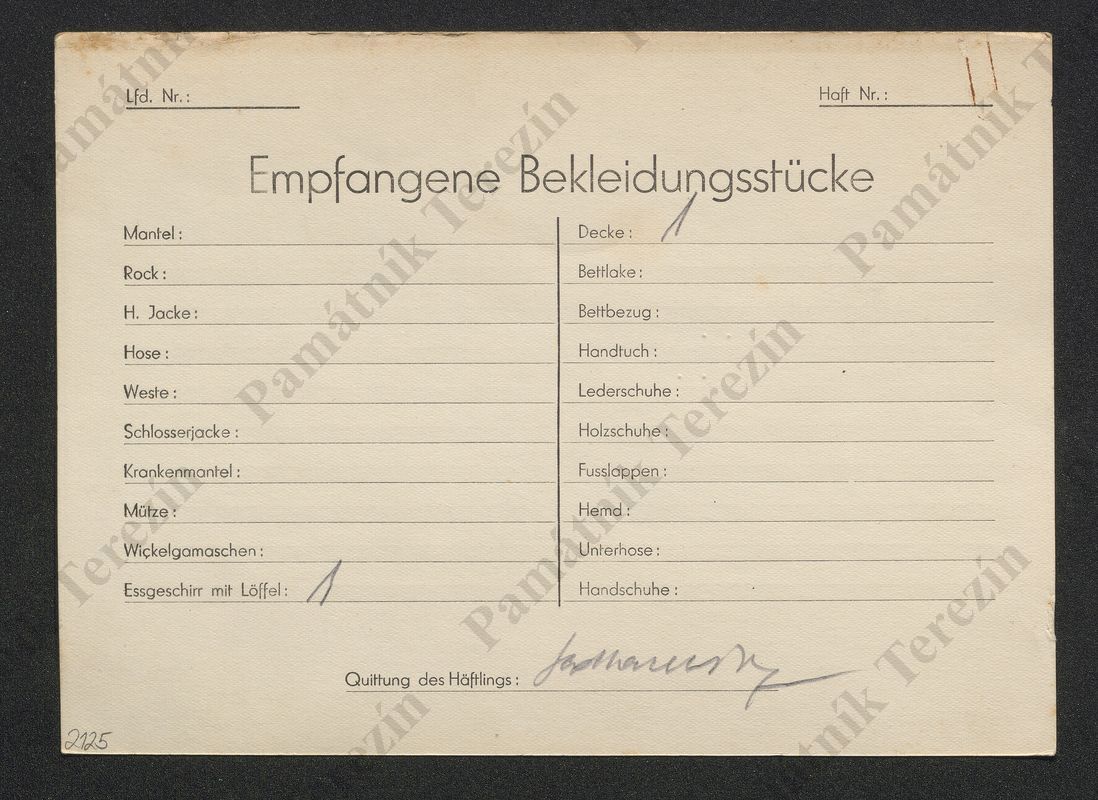 Lfd. Nr.:
Haft Nr.:
Empfangene Bekleidungsstücke
Mantel:
Rock:
H. Jacke:
Hose:
Weste:
Schlosserjacke:
Krankenmantel:
Mütze:
Wickelgamaschen:
Essgeschirr mit Löffel: 1
Decke: 1
Bettlake:
Bettbezug:
Handtuch:
Lederschuhe:
Holzschuhe:
Fusslappen:
Hemd:
Unterhose:
Handschuhe:
Quittung des Häftlings:
2125
Památník Terezín